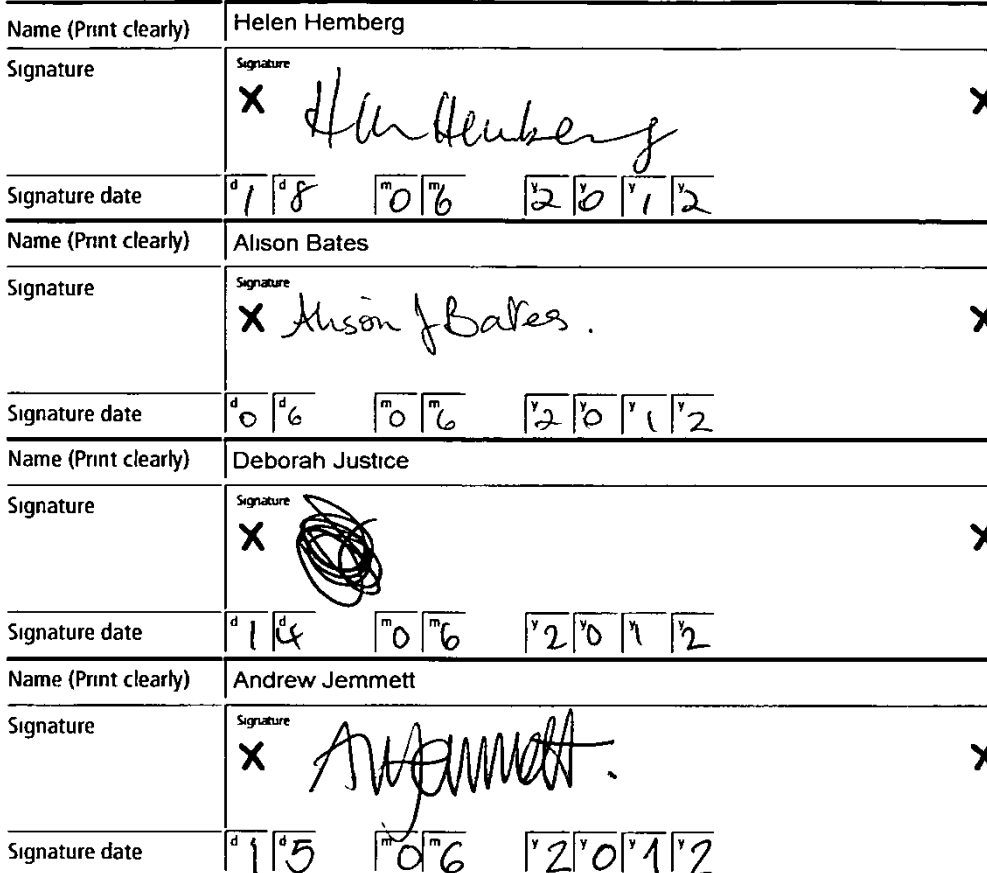 Name (Print clearly) Helen Hemberg
Signature Signature
X Hln Hemberg X
Signature date d 1 d 8 m 0 m 6 y 2 y 0 y 1 y 2
Name (Print clearly) Alison Bates
Signature Signature
X Alison J Bates. X
Signature date d 0 d 6 m 0 m 6 y 2 y 0 y 1 y 2
Name (Print clearly) Deborah Justice
Signature Signature
X X
Signature date d 1 d 4 m 0 m 6 y 2 y 0 y 1 y 2
Name (Print clearly) Andrew Jemmett
Signature Signature
X AWJemmett. X
Signature date d 1 d 5 m 0 m 6 y 2 y 0 y 1 y 2